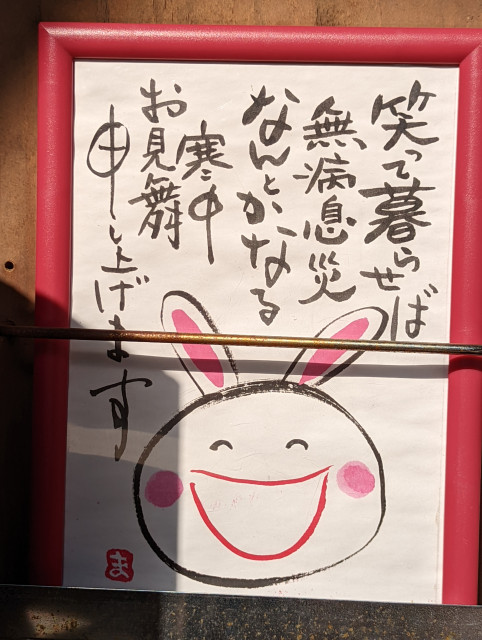 笑って暮らせば
無病息災
なんとかなる
寒中
お見舞
申し上げます
ま